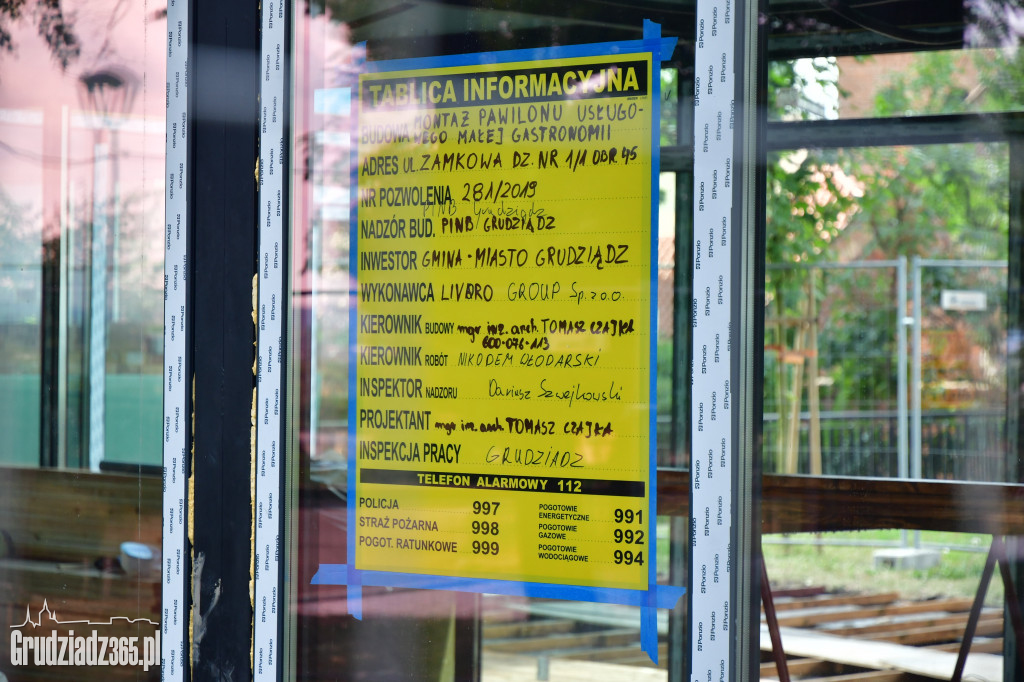 TABLICA INFORMACYJNA
MONTAŻ PAWILONU USŁUGO-
BUDOWA WEGO MAŁEJ GASTRONOMII
ADRES UL. ZAMKOWA DZ. NR 1/1 OBR 45
NR POZWOLENIA 281/2019
PINB Grudziądz
NADZÓR BUD. PINB GRUDZIĄDZ
INWESTOR GMINA-MIASTO GRUDZIĄDZ
WYKONAWCA LIVBRO GROUP Sp. z o.o.
KIEROWNIK BUDOWY mgr inż. arch. TOMASZ CZAJKA
600-076-113
KIEROWNIK ROBÓT NIKODEM WŁODARSKI
INSPEKTOR NADZORU Dariusz Szwejkowski
PROJEKTANT mgr inż. arch. TOMASZ CZAJKA
INSPEKCJA PRACY GRUDZIĄDZ
TELEFON ALARMOWY 112
POLICJA 997
STRAŻ POŻARNA 998
POGOT. RATUNKOWE 999
POGOTOWIE
ENERGETYCZNE 991
POGOTOWIE
GAZOWE 992
POGOTOWIE
WODOCIĄGOWE 994
Ponzio
Grudziadz365.pl